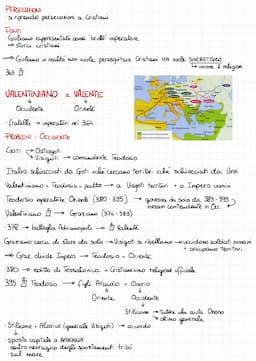 PERSECUZIONI
si riprendono persecuzioni a Cristiani
FONTI
Giuliano rappresentato come "brutto" imperatore
→ storici cristiani
→ Giuliano in realtà non vuole perseguitare Cristiani ma vuole SINCRETISMO
→ unione 2 religioni
363
VALENTINIANO e VALENTE
Occidente Oriente
fratelli → imperatori nel 364
PROBLEMI - OCCIDENTE
Goti Ostrogoti
Visigoti → comandante Teodosio
Italia schiacciata da Goti che cercano territori che schiacciati da Unni
Valentiniano + Teodosio = patto → a Visigoti territori + a Impero uomini
Teodosio imperatore Oriente (380-395) governa da solo da 383-395
Valentiniano → Graziano (374-383)
378 → battaglia Adrianopoli → Valente
Graziano cerca di stare da solo → Visigoti si ribellano → uccidono soldati romani
+ occupano territori
→ Graz. divide Impero → Teodosio - Oriente
380 → editto di Tessalonica - Cristianesimo religione ufficiale
395 Teodosio → figli Arcadio - Onorio
Oriente Occidente
Stilicone → tutore che aiuta Onorio
→ ottimo generale
- Stilicone + Alarico (generale Visigoti) → accordo
→ sposta capitale a RAVENNA
- centro nevralgico degli spostamenti tribù
- sul mare